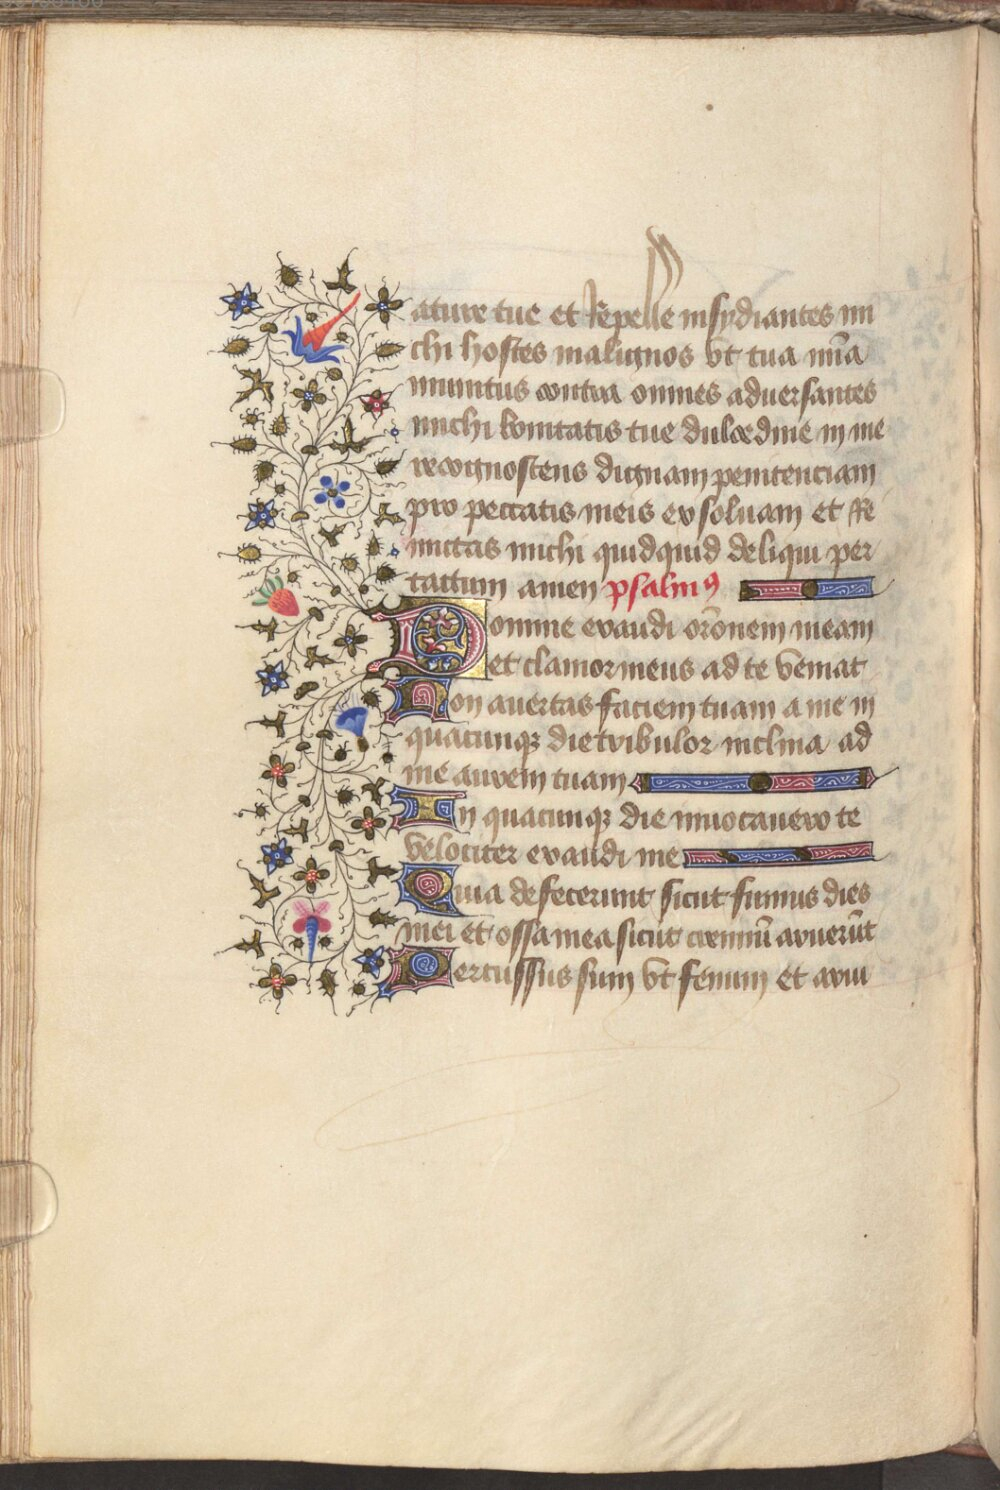 ature tue et repelle insydiantes mi
chi hostes malignos vt tua mīa
munitus contra omnes aduersantes
michi bonitatis tue dulcedine in me
recognoscens dignam penitenciam
pro peccatis meis exsoluam et re
mittas michi quidquid deliqui per
tactum amen psalmꝰ
Domine exaudi orōnem meam
et clamor meus ad te veniat
Non auertas faciem tuam a me in
quacunqꝫ die tribulor inclina ad
me aurem tuam
In quacunqꝫ die inuocauero te
velociter exaudi me
Quia defecerunt sicut fumus dies
mei et ossa mea sicut cremiū aruerūt
Percussus sum vt fenum et aruu